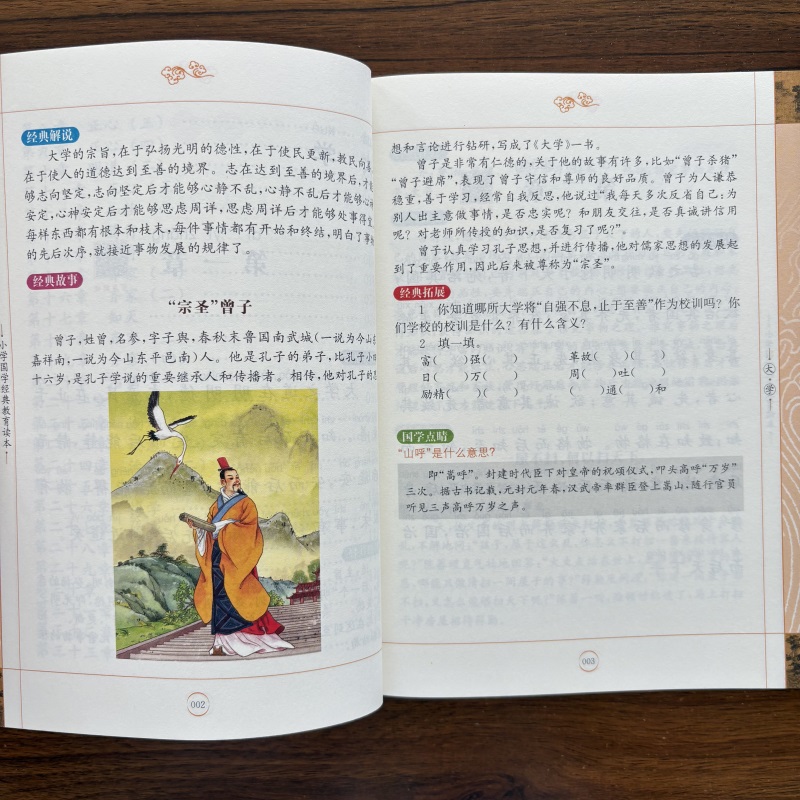 经典解说
大学的宗旨，在于弘扬光明的德性，在于使民更新，教民向善，
在于使人的道德达到至善的境界。志在达到至善的境界后，才能
够志向坚定，志向坚定后才能够心静不乱，心静不乱后才能够心
安定，心神安定后才能够思虑周详，思虑周详后才能够处事得
每样东西都有根本和枝末，每件事情都有开始和终结，明白了事
的先后次序，就接近事物发展的规律了。
经典故事
“宗圣”曾子
曾子，姓曾，名参，字子舆，春秋末鲁国南武城（一说为今山
嘉祥南，一说为今山东平邑南）人。他是孔子的弟子，比孔子小
十六岁，是孔子学说的重要继承人和传播者。相传，他对孔子的
小学国学经典教育读本
002
想和言论进行钻研，写成了《大学》一书。
曾子是非常有仁德的，关于他的故事有许多，比如“曾子杀猪”
“曾子避席”，表现了曾子守信和尊师的良好品质。曾子为人谦恭
稳重，善于学习，经常自我反思，他说过“我每天多次反省自己：为
别人出主意做事情，是否忠实呢？和朋友交往，是否真诚讲信用
呢？对老师所传授的知识，是否复习了呢？”。
曾子认真学习孔子思想，并进行传播，他对儒家思想的发展起
到了重要作用，因此后来被尊称为“宗圣”。
经典拓展
1 你知道哪所大学将“自强不息，止于至善”作为校训吗？你
们学校的校训是什么？有什么含义？
2 填一填。
富（ ）强（ ） 革故（ ）（ ）
日（ ）万（ ） 周（ ）吐（ ）
励精（ ）（ ） （ ）通（ ）和
国学点睛
“山呼”是什么意思？
即“嵩呼”。封建时代臣下对皇帝的祝颂仪式，叩头高呼“万岁”
三次。据古书记载，元封元年春，汉武帝率群臣登上嵩山，随行官员
听见三声高呼万岁之声。
大学
003